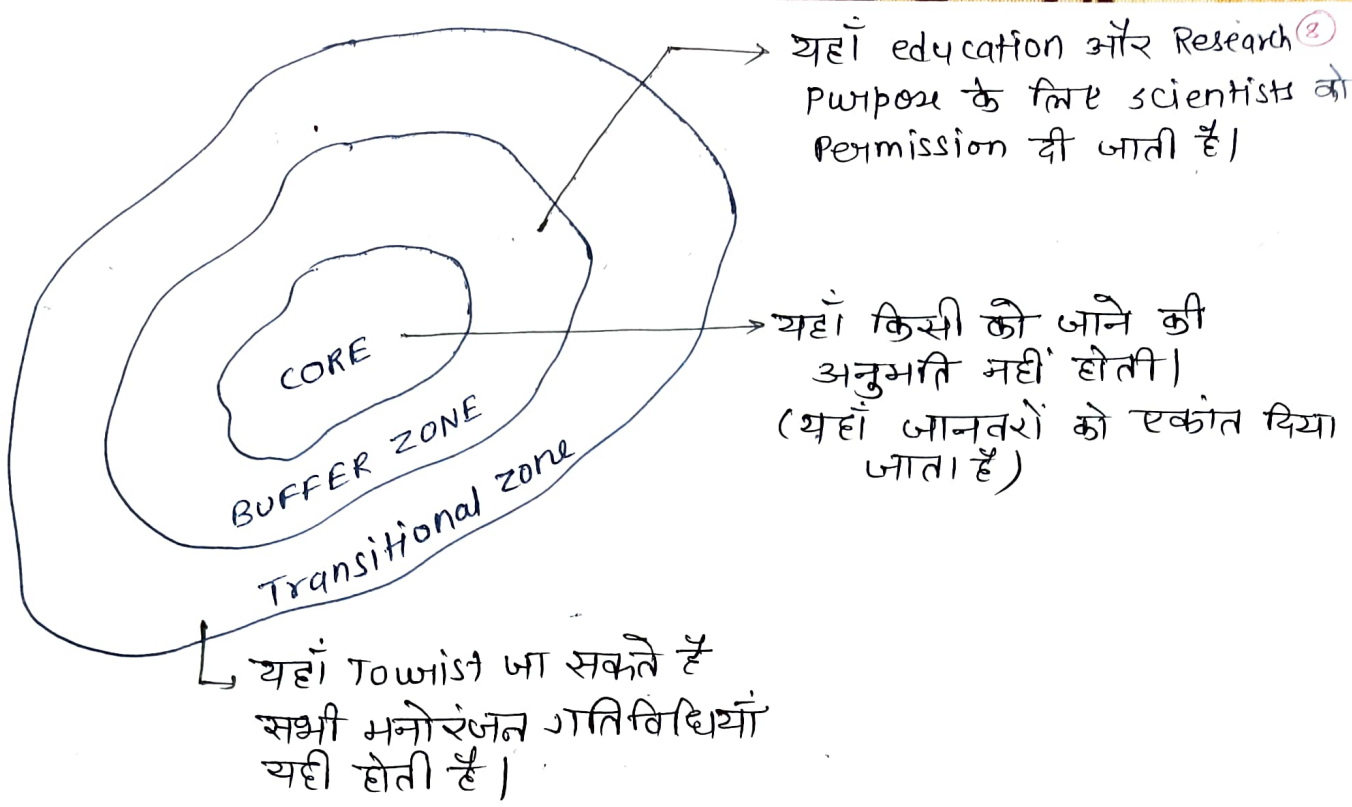 यहाँ education और Research
purpose के लिए scientists को
Permission दी जाती है।
यहाँ किसी को जाने की
अनुमति नहीं होती।
(यहाँ जानवरों को एकांत दिया
जाता है)
CORE
BUFFER ZONE
Transitional zone
यहाँ Tourist जा सकते हैं
सभी मनोरंजन गतिविधियाँ
यही होती है।